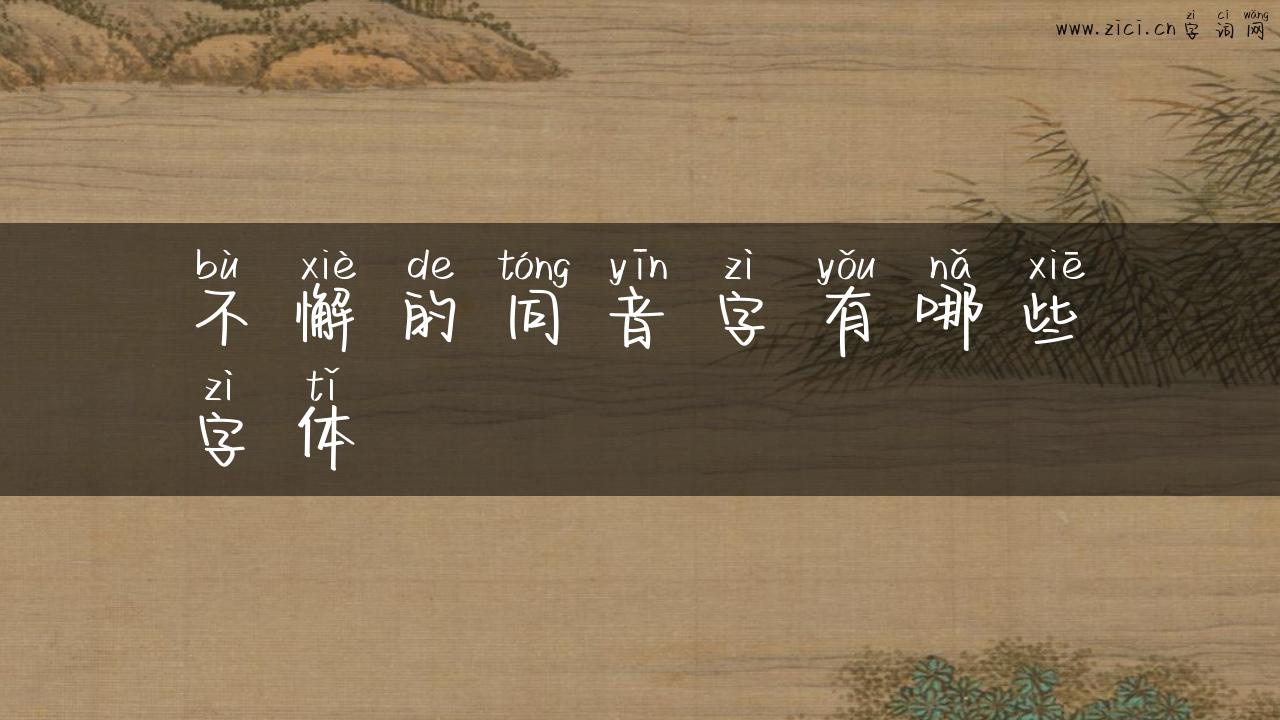 zì cí wǎng
www.zici.cn 字词网
bù xiè de tóng yīn zì yǒu nǎ xiē
不懈的同音字有哪些
zì tǐ
字体